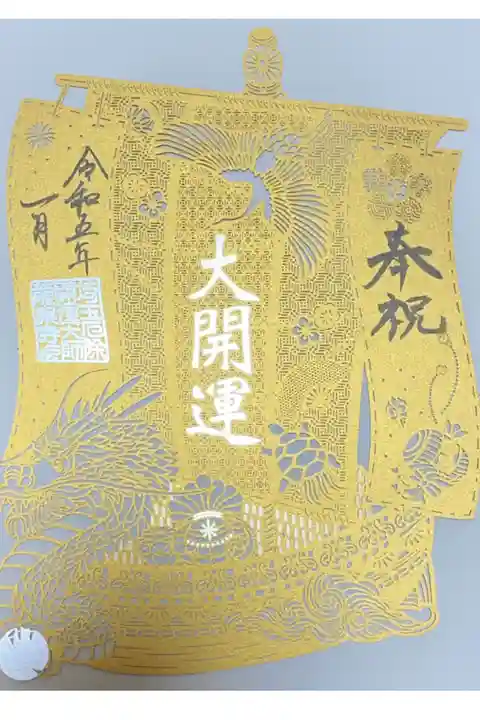 奉祝
大開運
令和五年
一月